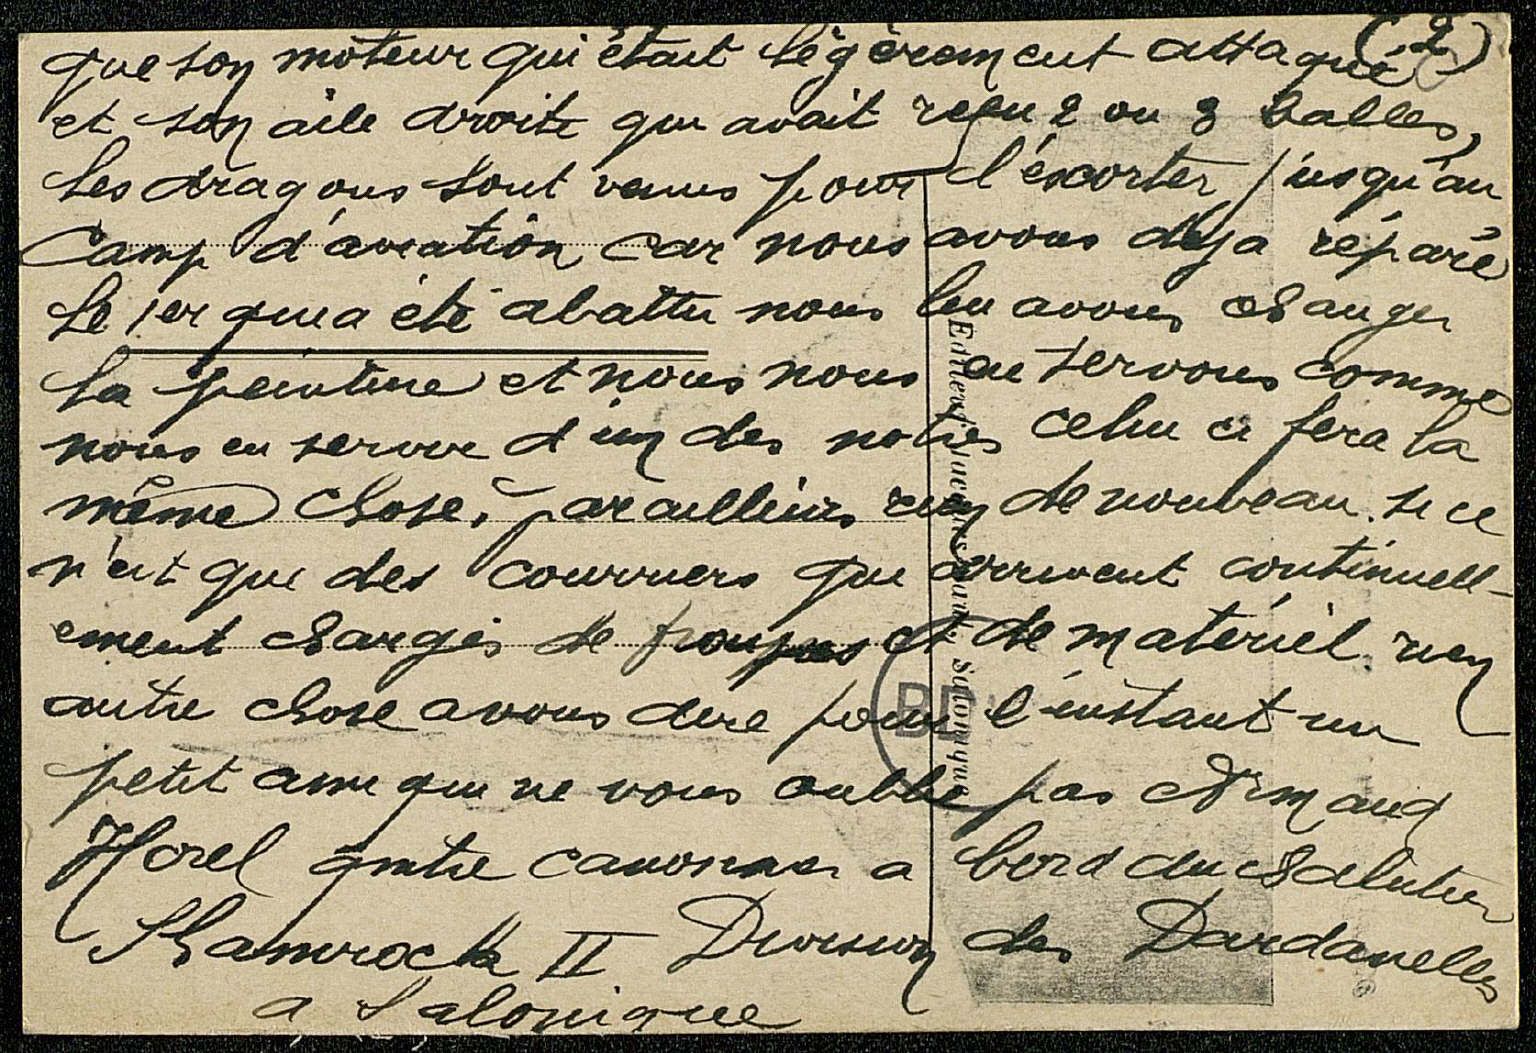 (2)
que son moteur qui était légèrement attaqué
et son aile droite qui avait reçu 2 ou 3 balles,
les dragons sont venus pour l'escorter jusqu'au
Camp d'aviation car nous avons deja réparé
le 1er qui a été abattu nous lui avons changer
la peinture et nous nous en servons comme
nous en servir d'un des notres celui ci fera la
même chose, par ailleurs rien de nouveau. si ce
n'est que des courriers qui arrivent continuell-
ement chargés de troupes et de matériel rien
autre chose a vous dire pour l'instant un
petit ami qui ne vous oublie pas Armand
Horel canonnier a bord du chalutier
Shamrock II Division des Dardanelles
a Salonique
Salonique
BD